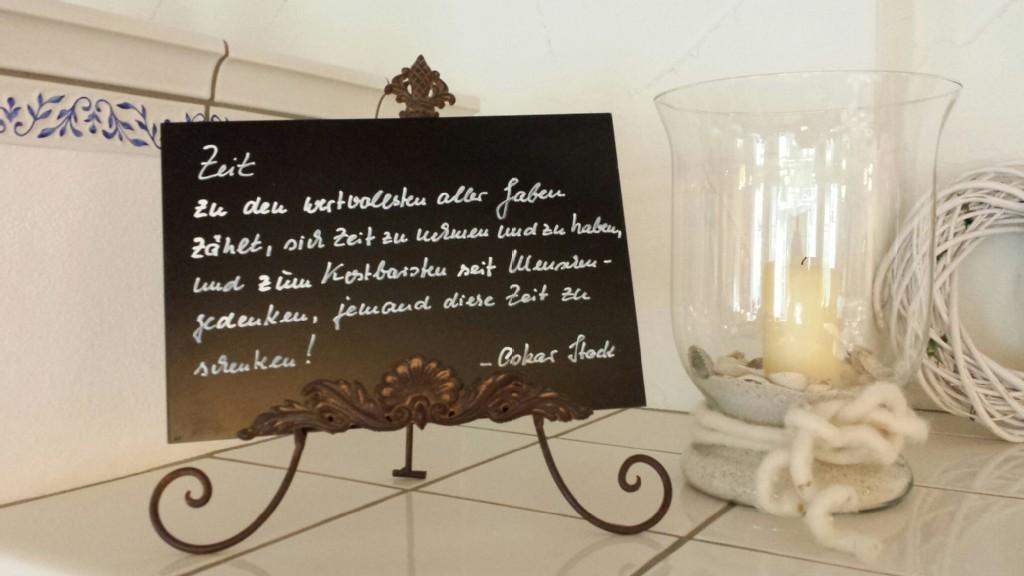 Zeit
zu den wertvollsten aller Gaben
zählt, sich Zeit zu nehmen und zu haben,
und zum Kostbarsten seit Menschen-
gedenken, jemand diese Zeit zu
schenken!
- Oskar Stock